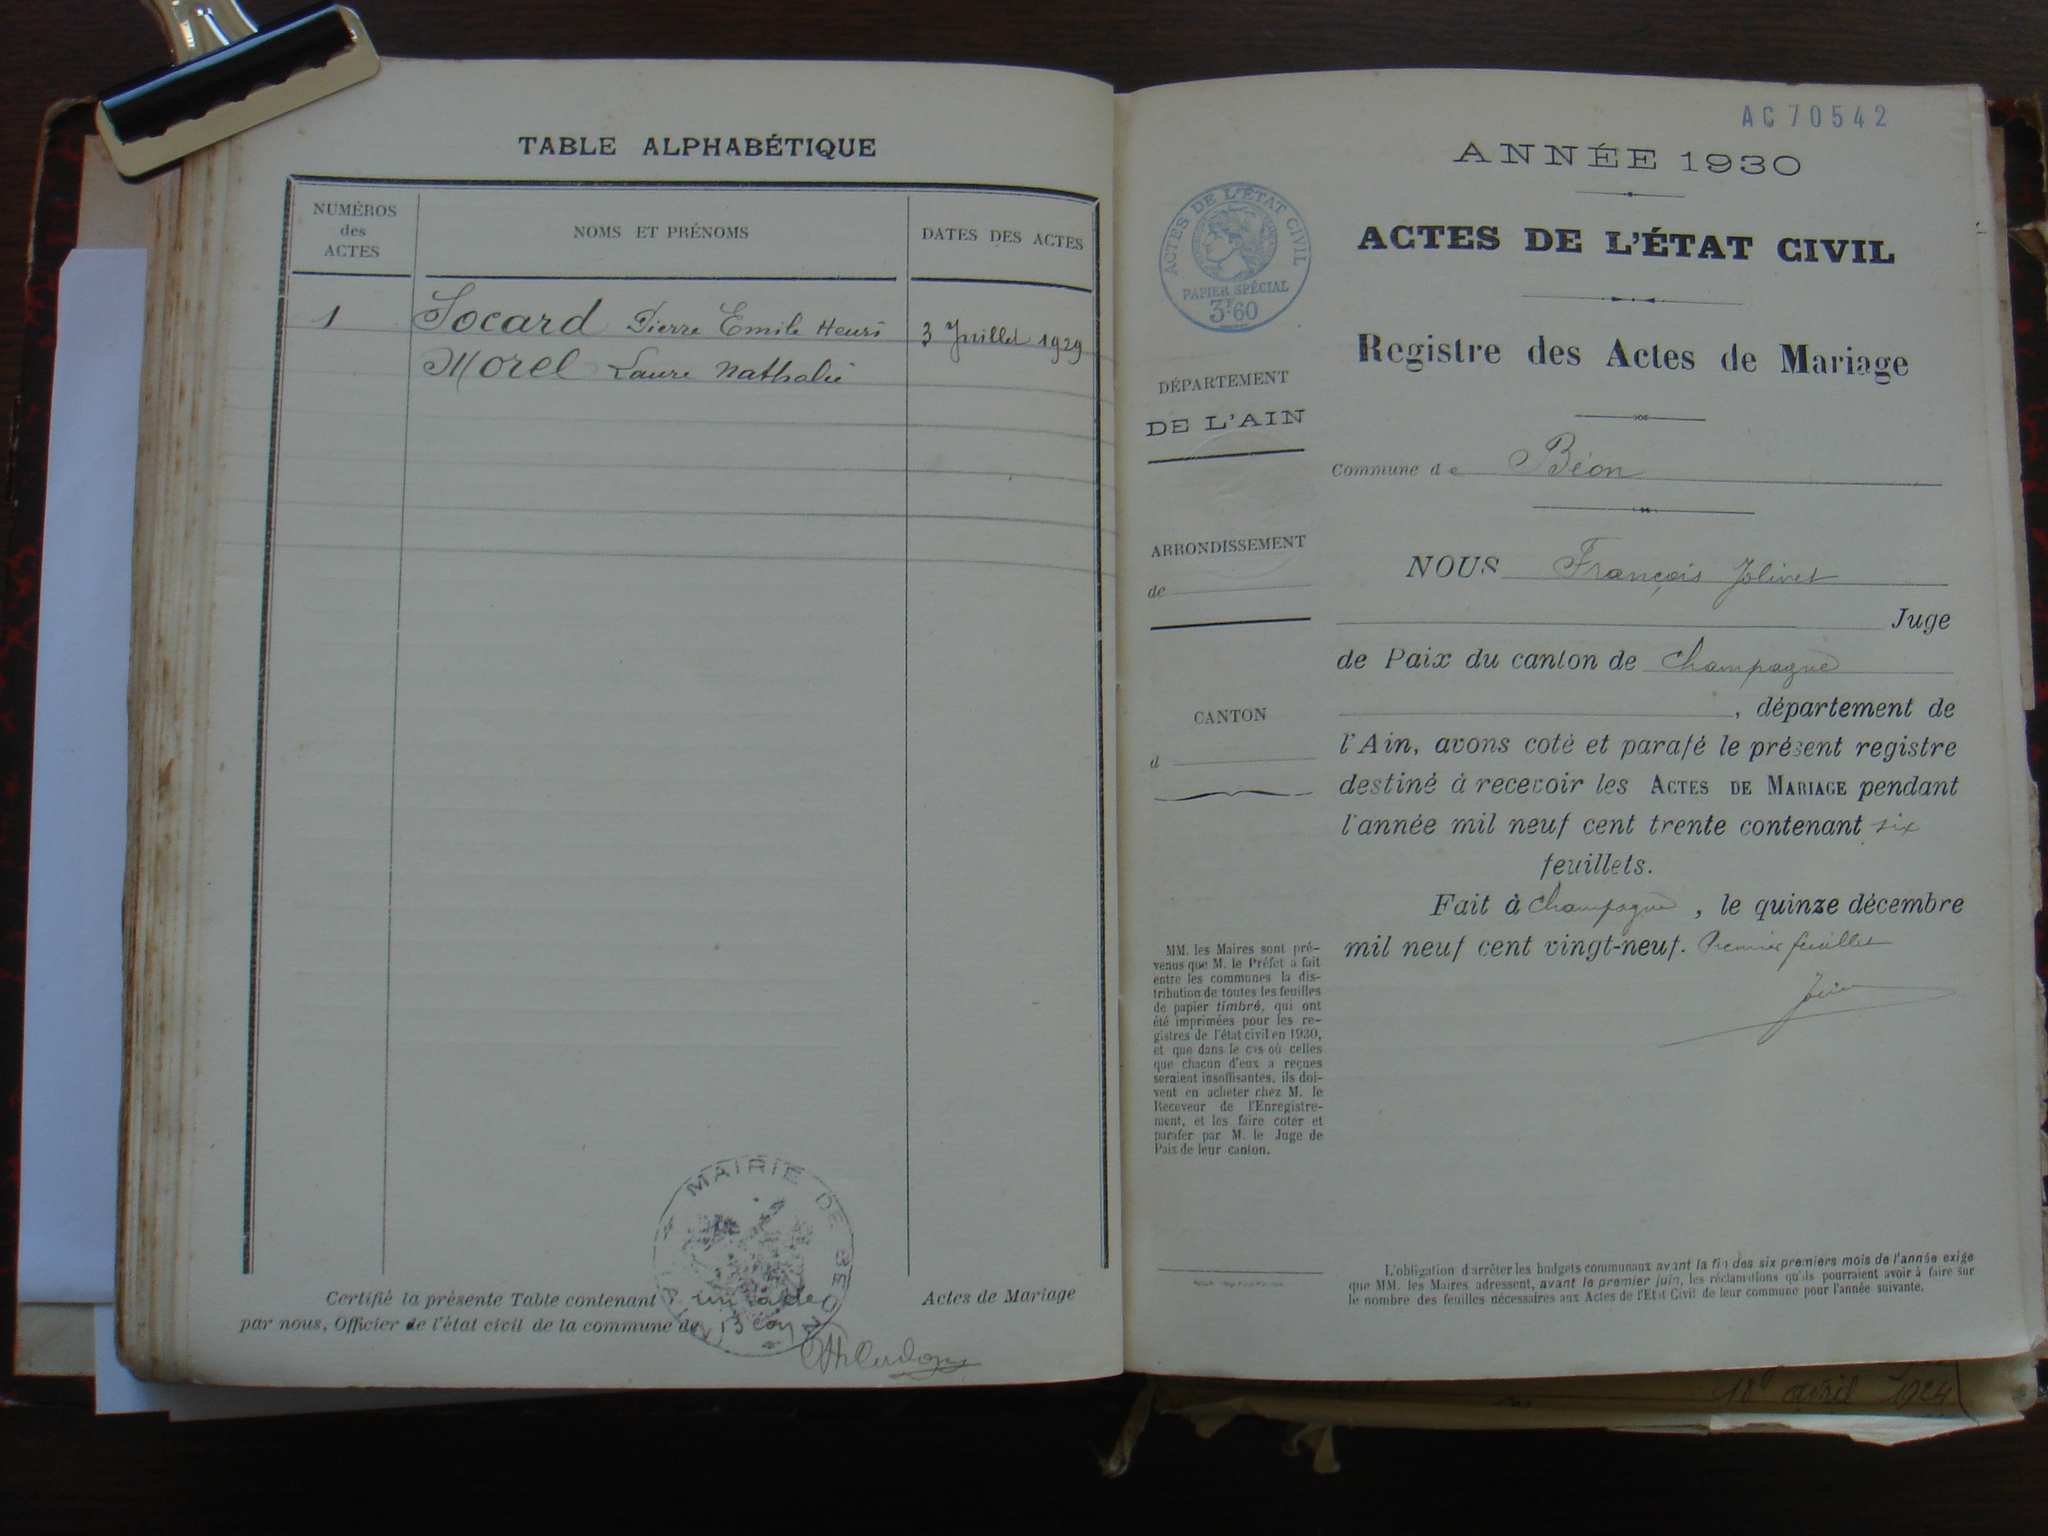 TABLE ALPHABÉTIQUE
NUMÉROS
des
ACTES
NOMS ET PRÉNOMS
DATES DES ACTES
1
Socard Pierre Emile Henri
3 Juillet 1929
Morel Laure Nathalie
MAIRIE DE BEON
AIN
Certifié la présente Table contenant un acte
Actes de Mariage
par nous, Officier de l'état civil de la commune de Béon
AC 70542
ANNÉE 1930
ACTES DE L'ÉTAT CIVIL
PAPIER SPÉCIAL
3F60
ACTES DE L'ÉTAT CIVIL
Registre des Actes de Mariage
DÉPARTEMENT
DE L'AIN
Commune de Béon
ARRONDISSEMENT
de
NOUS François Jolivet
Juge
de Paix du canton de Champagne
CANTON
d
, département de
l'Ain, avons coté et parafé le présent registre
destiné à recevoir les ACTES DE MARIAGE pendant
l'année mil neuf cent trente contenant six
feuillets.
Fait à Champagne, le quinze décembre
mil neuf cent vingt-neuf. Premier feuillet
MM. les Maires sont pré-
venus que M. le Préfet a fait
entre les communes la dis-
tribution de toutes les feuilles
de papier timbré, qui ont
été imprimées pour les re-
gistres de l'état civil en 1930,
et que dans le cas où celles
que chacun d'eux a reçues
seraient insuffisantes, ils doi-
vent en acheter chez M. le
Receveur de l'Enregistre-
ment, et les faire coter et
parafer par M. le Juge de
Paix de leur canton.
L'obligation d'arrêter les budgets communaux avant la fin des six premiers mois de l'année exige
que MM. les Maires adressent, avant le premier juin, les réclamations qu'ils pourraient avoir à faire sur
le nombre des feuilles nécessaires aux Actes de l'Etat Civil de leur commune pour l'année suivante.
avril 1924